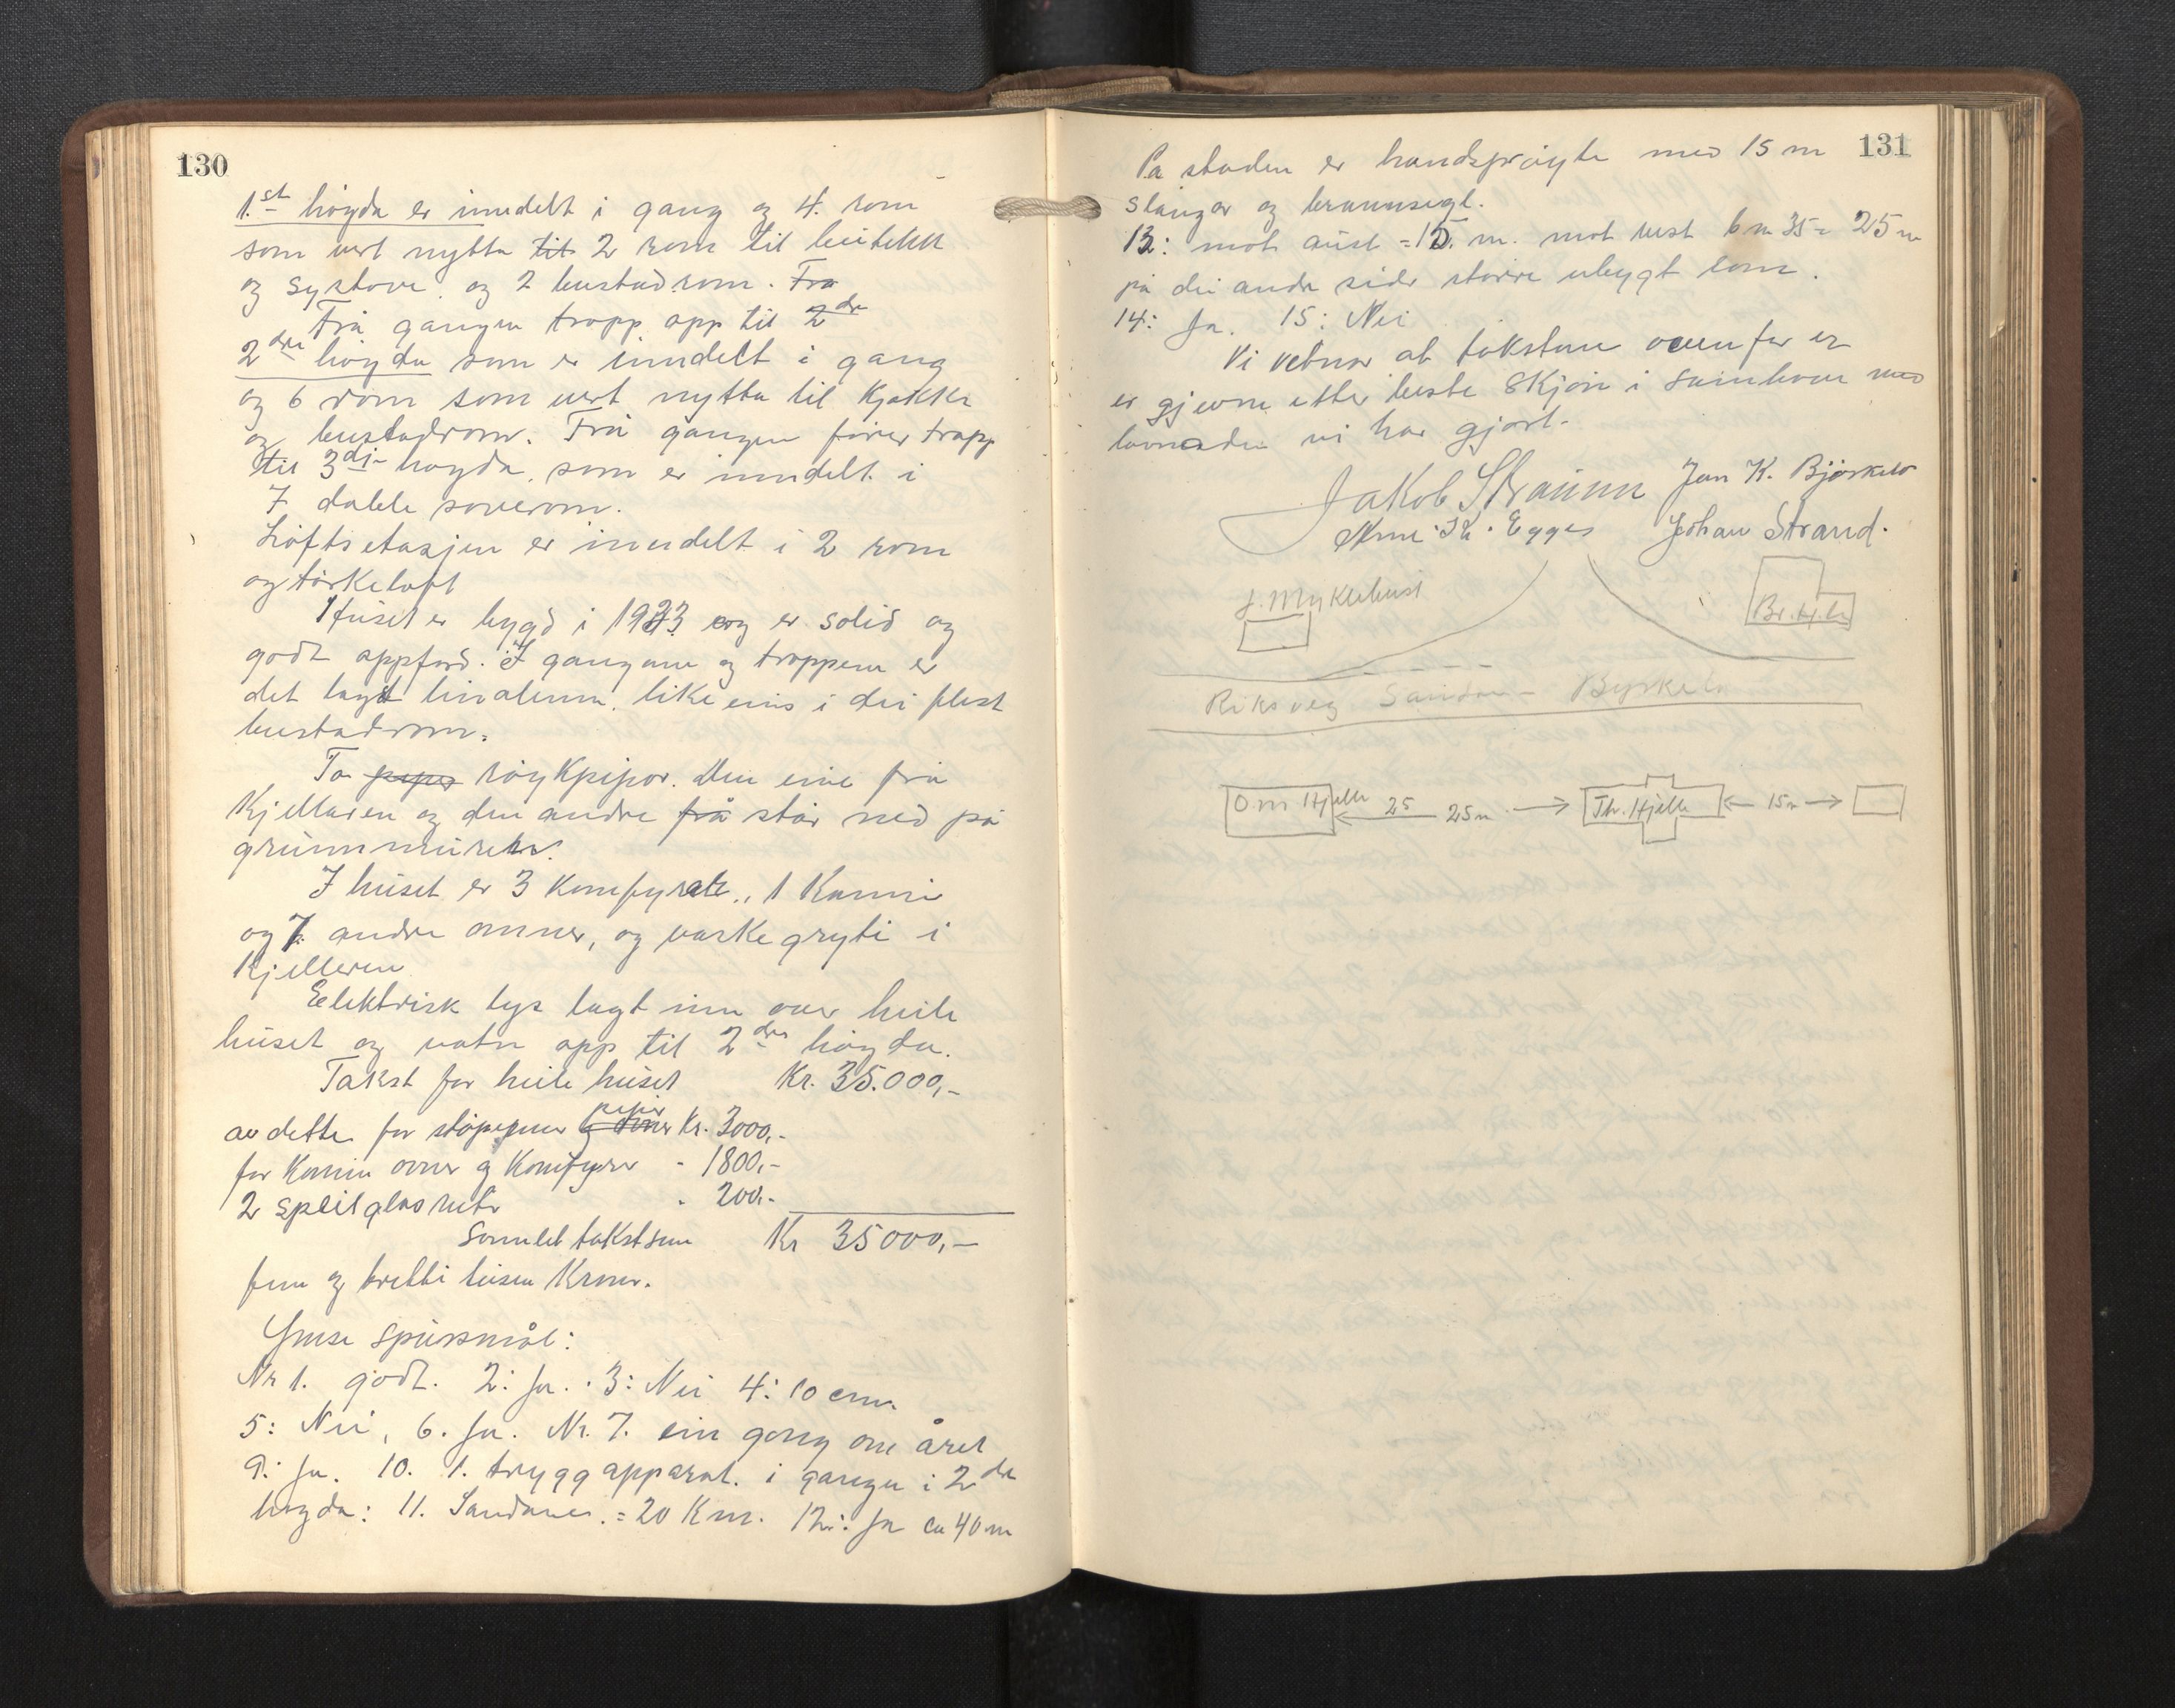 130
1.st høgda er inndelt i gang og 4. rom
som vert nytta til 2 rom til butikk
og systove og 2 bustadrom. Fra
Frå gangen tropp opp til 2dre
2dre høgda som er inndelt i gang
og 6 rom som vert nytta til Kjøkke
og bustadrom. Frå gangen fører trapp
til 3di høgda, som er inndelt i
7 doble soverom.
Loftsetasjen er inndelt i 2 rom
og tørkeloft
Huset er bygd i 1933 og er solid og
godt oppførd. I gangane og troppene er
det lagt linoleum, like eins i dei flest
bustadrom.
To piper røykpipor. Den eine frå
Kjellaren og den andre frå står ned på
grunnmuren.
I huset er 3 Komfyrar, 1 Kamin
og 7 andre omner, og vaskegryte i
Kjelleren
Eelektrisk lys lagt inn over heile
huset og vatn opp til 2dre høgda.
Takst for heile huset Kr. 35.000,-
av dette for støpepner og omner piper Kr. 3000,-
for Kamin ovner og Komfyrer - 1800,-
2 speilglas ruter - 200,-
Samlet takstsum Kr 35000,-
fem og tretti tusen Kroner.
Ymse spursmål:
Nr 1. godt. 2: Ja. 3: Nei 4: 10 cm.
5: Nei, 6. Ja. Nr. 7. ein gong om året
9: Ja. 10. 1. trygg apparat. i gangen i 2dre
høgda: 11. Sandane. = 20 Km. 12: Ja ca 40 m
131
På staden er handsprøyte med 15 m
slanger og brannsegl.
13: mot aust = 15. m. mot vest 25 m
på dei andre sider større ubygt rom.
14: Ja. 15: Nei
Vi vitnar at taksten ovenfor er
er gjevne etter beste Skjøn i samhøve med
lovnaden vi har gjort.
Jakob Straumm Jon K. Bjørkelo
K. Egges Johan Strand.
J. Myklebust
Br. Hjelle
Riksveg Sandane - Byrkelo
O.m Hjelle 25 25m Th. Hjelle 15m